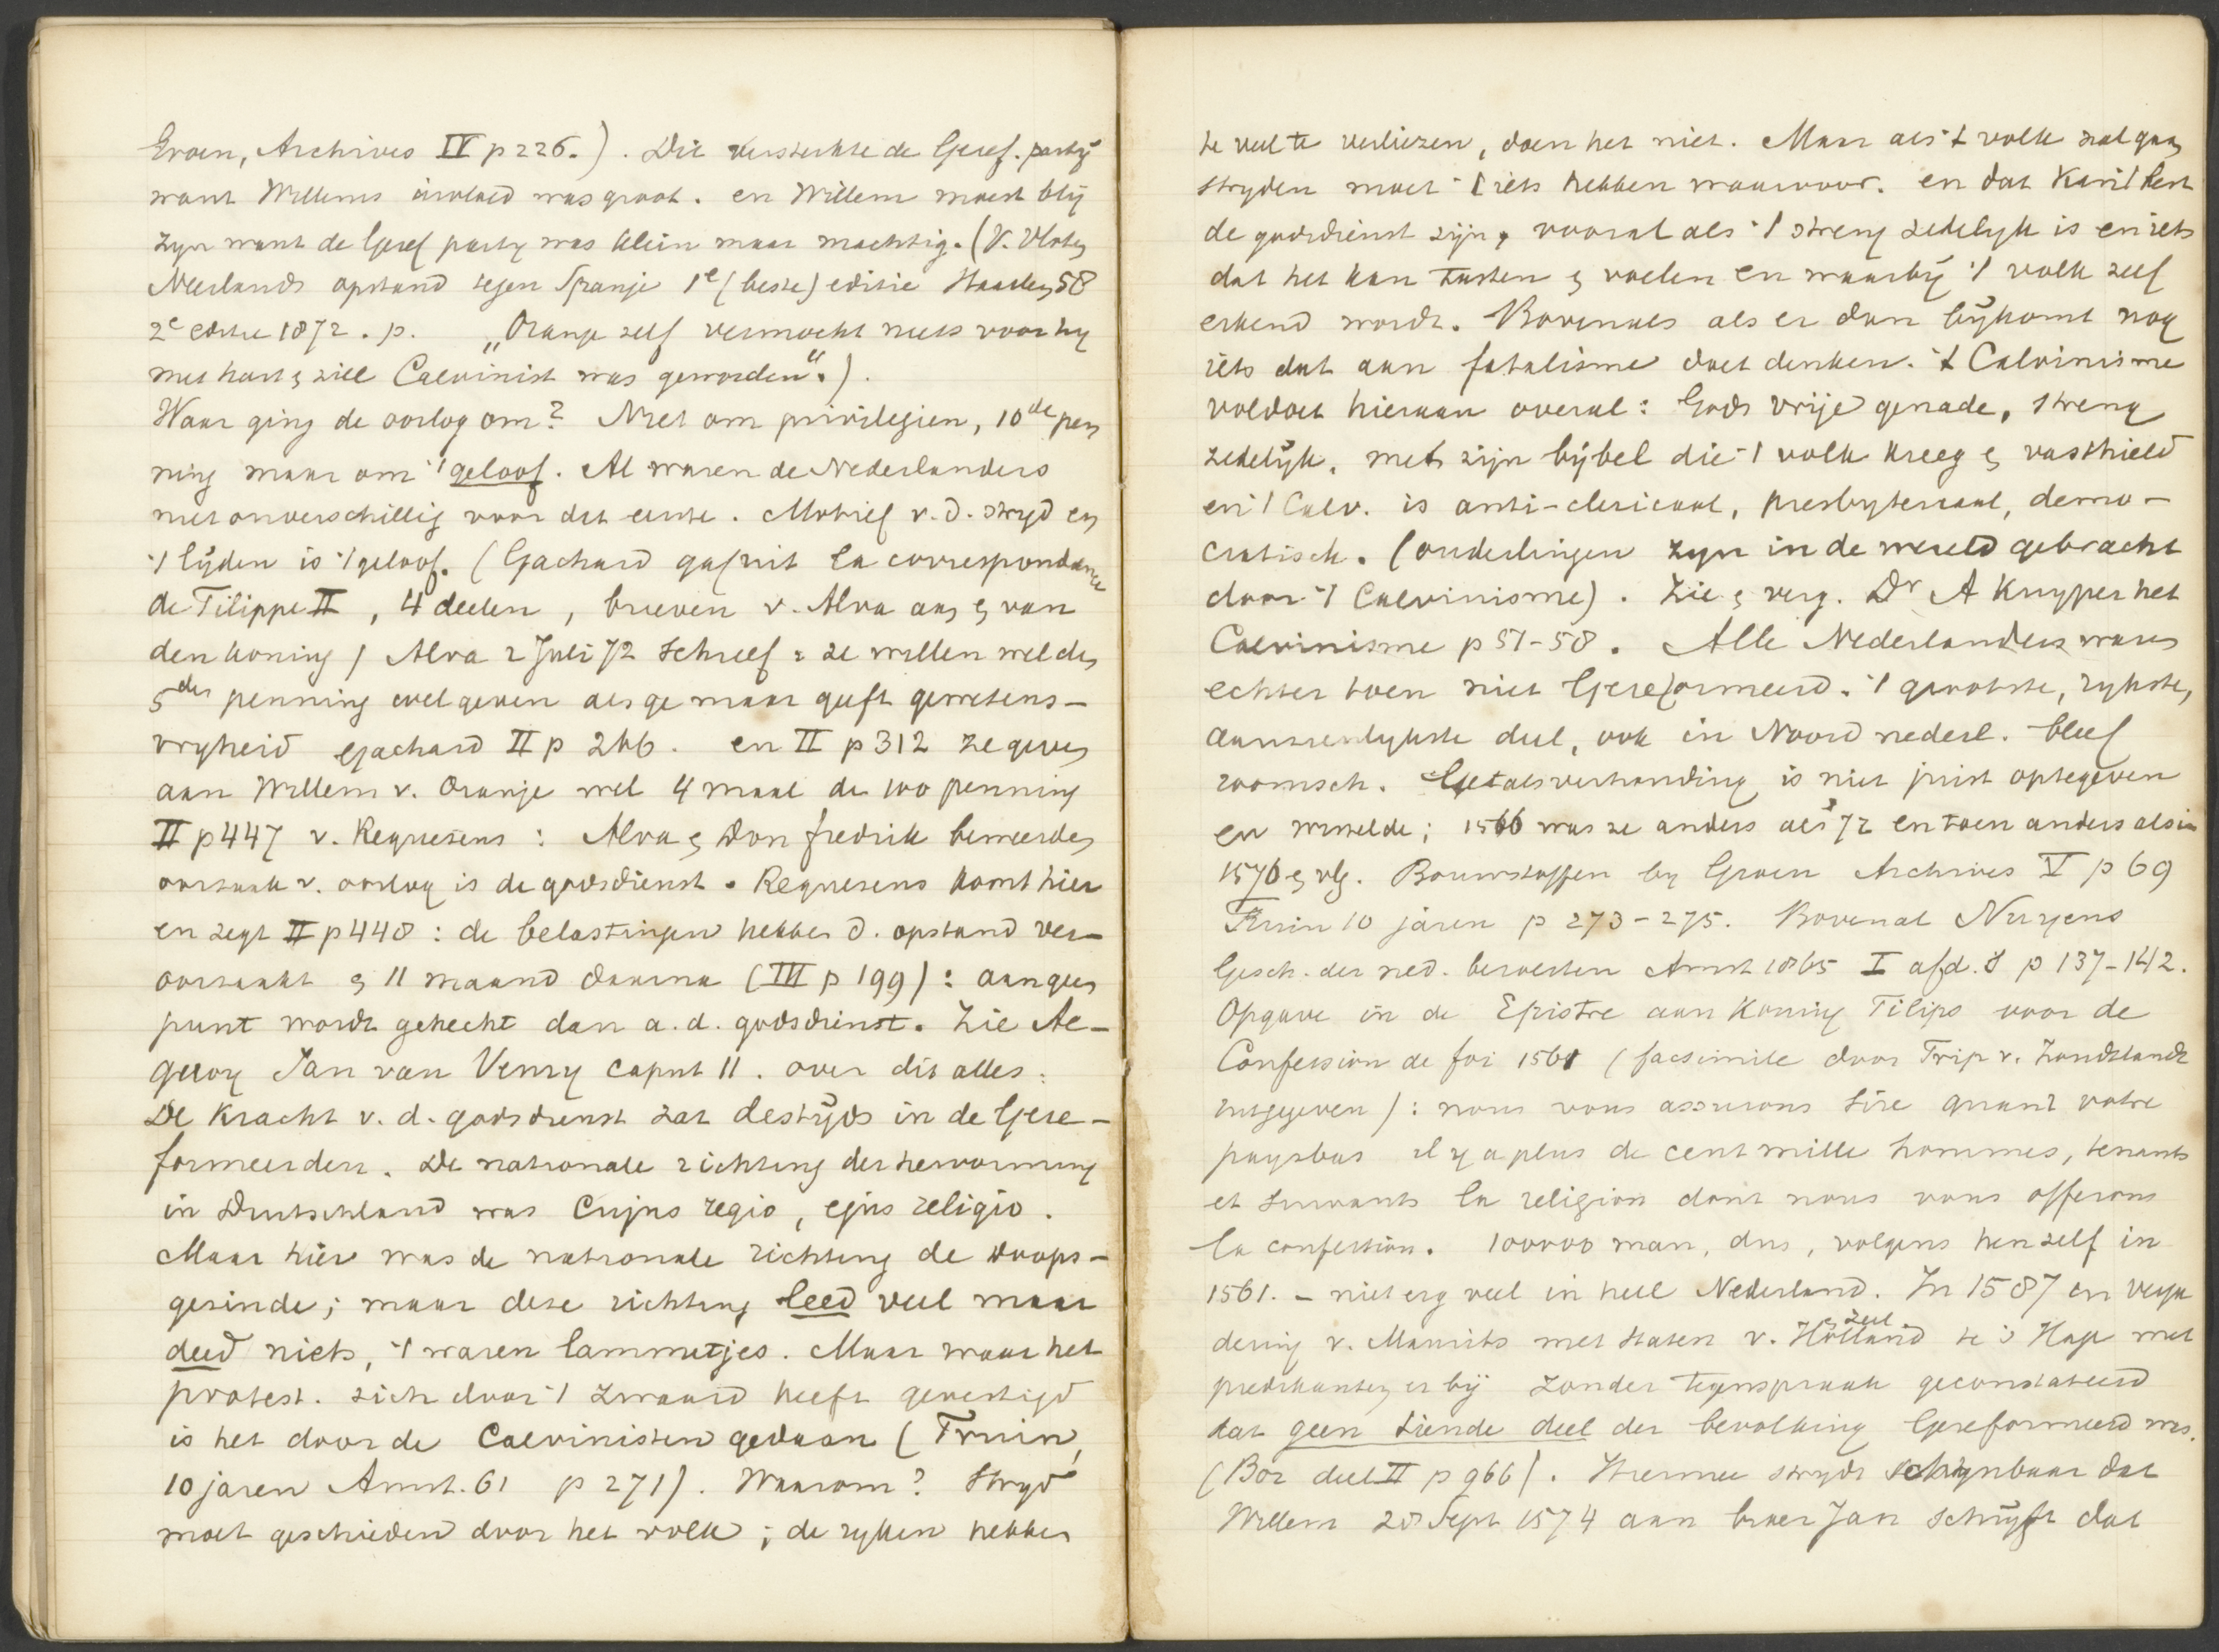 Groen, Archives IV p 226.). Dit versterkte de Geref. partij
want Willems invloed was groot. en Willem moest blij
zijn want de Geref party was klein maar machtig. (V. Vloten
Neerlands opstand tegen Spanje 1e (beste) editie Haarlem 58
2e editie 1872. p. „Oranje zelf vermocht niets voor hy
met hart & ziel Calvinist was geworden“.).
Waar ging de oorlog om? Niet om privilegien, 10de pen
ning maar om 't geloof. Al waren de Nederlanders
niet onverschillig voor dat eerste. Motief v. d. stryd en
't lijden is 't geloof. (Gachard gaf uit la correspondance
de Filippe II, 4 deelen, brieven v. Alva aan & van
den koning) Alva 2 Juli 72 schreef: ze willen wel den
5den penning wel geven als ge maar geeft gewetens-
vryheid Gachard II p 266. en II p 312 ze geven
aan Willem v. Oranje wel 4 maal de 100 penning
II p 447 v. Requesens: Alva & Don fredrik beweerden
oorzaak v. oorlog is de godsdienst. Requesens komt hier
en zegt II p 448: de belastingen hebben d. opstand ver-
oorzaakt & 11 maand daarna (III p 199): aan geen
punt wordt gehecht dan a. d. godsdienst. Zie Ae-
geroy Jan van Venray caput 11. over dit alles:
De kracht v. d. godsdienst zat destijds in de Gere-
formeerden. De nationale richting der hervorming
in Duitschland was Cujus regio, ejus religio.
Maar hier was de nationale richting de doops-
gezinde; maar deze richting leed veel maar
deed niets, 't waren lammetjes. Maar waar het
protest. zich door 't zwaard heeft gevestigd
is het door de Calvinisten gedaan (Fruin,
10 jaren Amst. 61 p 271). Waarom? Stryd
moet geschieden door het volk; de ryken hebben
te veel te verliezen, doen het niet. Maar als 't volk zal gaan
stryden moet 't iets hebben waarvoor. en dat kan 't best
de godsdienst zijn, vooral als 't streng zedelyk is en iets
dat het kan tasten & voelen en waarbij 't volk zelf
erkend wordt. Bovenals als er dan bijkomt nog
iets dat aan fatalisme doet denken. 't Calvinisme
voldoet hieraan overal: Gods vrije genade, streng
zedelijk, met zijn bijbel die 't volk kreeg & vasthield
en 't Calv. is anti-clericaal, presbyteriaal, demo-
cratisch. (ouderlingen zyn in de wereld gebracht
door 't Calvinisme). Zie & verg. Dr A Kuyper het
Calvinisme p 51-58. Alle Nederlanders waren
echter toen niet Gereformeerd. 't grootste, rykste,
aanzienlykste deel, ook in Noord nederl. bleef
roomsch. Getalsverhouding is niet juist optegeven
en wisselde; 1566 was ze anders als 72 en toen anders als in
1576 & vlg. Bouwstoffen by Groen Archives V p 69
Fruin 10 jaren p 273-275. Bovenal Nuyens
Gesch. der ned. beroerten Amst 1865 I afd. 8 p 137-142.
Opgave in de Epistre aan koning Filips voor de
Confession de foi 1561 (facsimile door Trip v. Zoudtlandt
uitgegeven): nous vous assurons Sire quant votre
paysbas il y a plus de cent mille hommes, tenants
et suivants la religion dont nous vous offerons
la confession. 100000 man, dus, volgens hen zelf in
1561. - niet erg veel in heel Nederland. In 1587 en verga
dering v. Maurits met Staten v. Holland & Zeel te 's Hage met
predikanten er bij zonder tegenspraak geconstateerd
dat geen tiende deel der bevolking Gereformeerd was.
(Bor deel II p 966). Hiermee strydt schijnbaar dat
Willem 28 Sept 1574 aan broer Jan schrijft dat